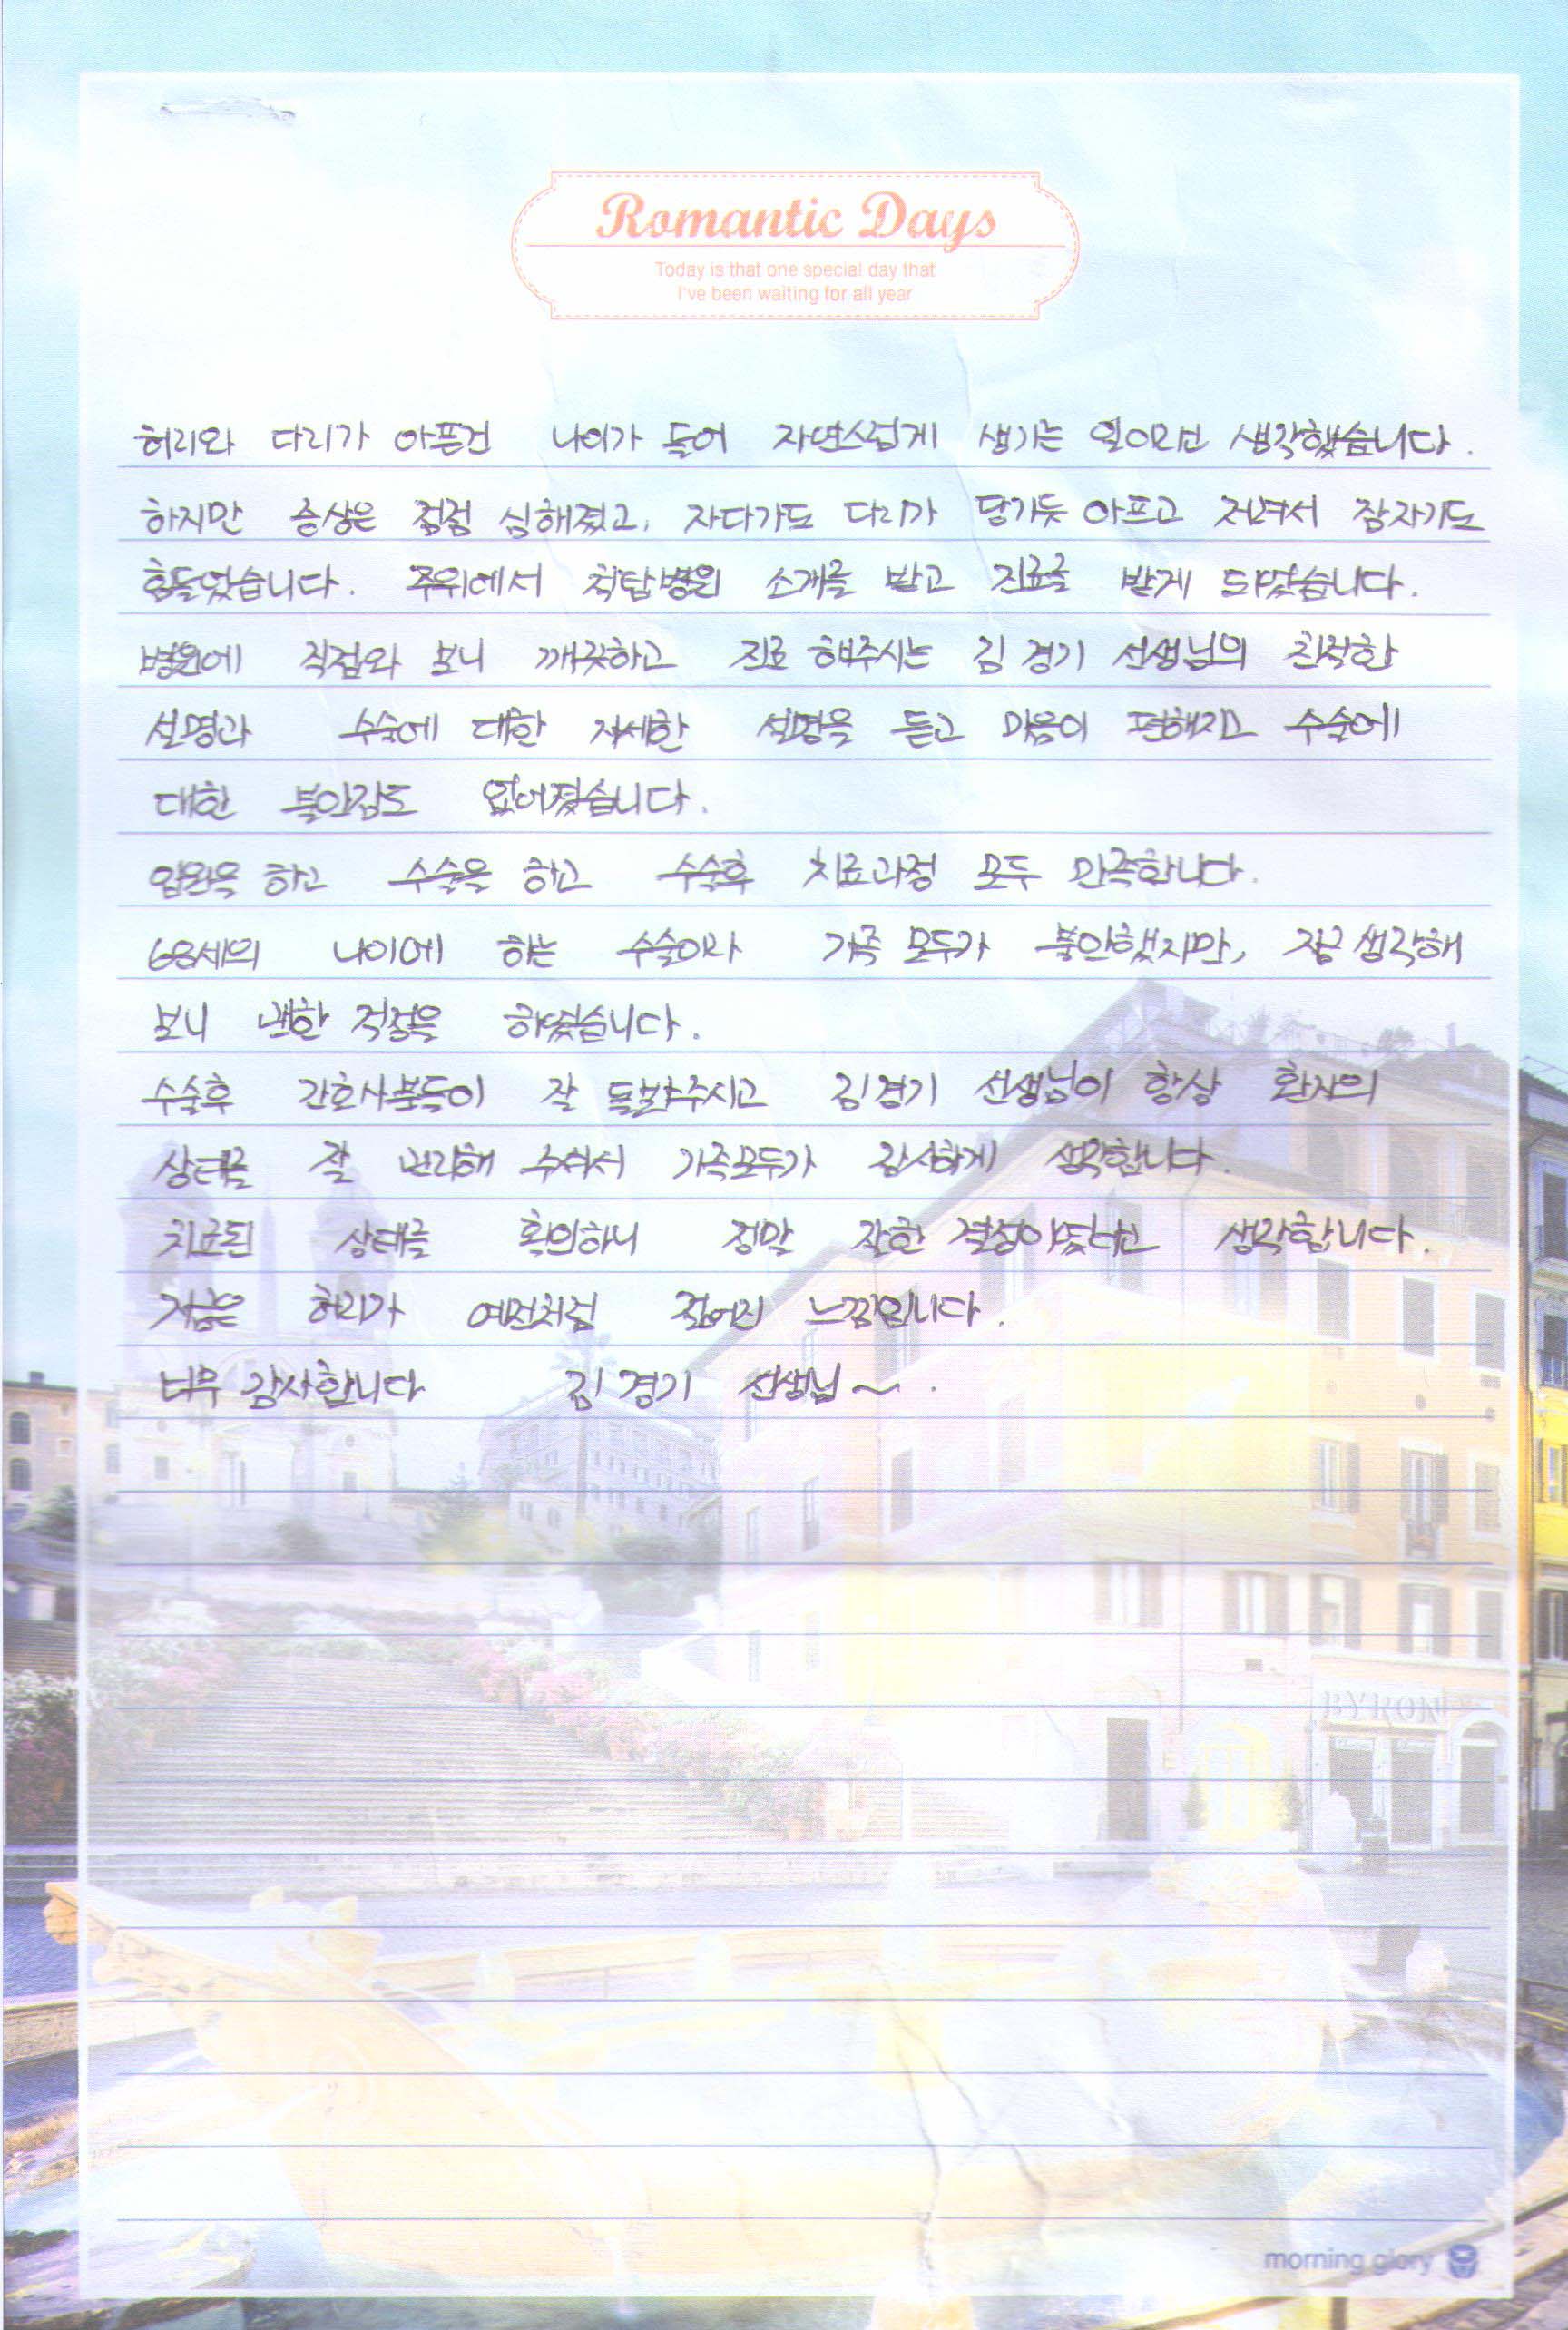 Romantic Days
Today is that one special day that
I've been waiting for all year
허리와 다리가 아픈건 나이가 들어 자연스럽게 생기는 일이라고 생각했습니다.
하지만 증상은 점점 심해졌고, 자다가도 다리가 당기듯 아프고 저려서 잠자기도
힘들었습니다. 주위에서 척탑병원 소개를 받고 진료를 받게 되었습니다.
병원에 직접와 보니 깨끗하고 진료 해주시는 김경기 선생님의 친착한
설명과 수술에 대한 자세한 설명을 듣고 마음이 편해지고 수술에
대한 불안감도 없어졌습니다.
입원을 하고 수술을 하고 수술후 치료과정 모두 만족합니다.
68세의 나이에 하는 수술이라 가족 모두가 불안했지만, 지금 생각해
보니 괜한 걱정을 하였습니다.
수술후 간호사분들이 잘 돌봐주시고 김경기 선생님이 항상 환자의
상태를 잘 관리해 주셔서 가족모두가 감사하게 생각합니다.
치료된 상태를 확인하니 정말 잘한 결정이었다고 생각합니다.
지금은 허리가 예전처럼 젊어진 느낌입니다.
너무 감사합니다 김경기 선생님~.
BYRON
morning glory